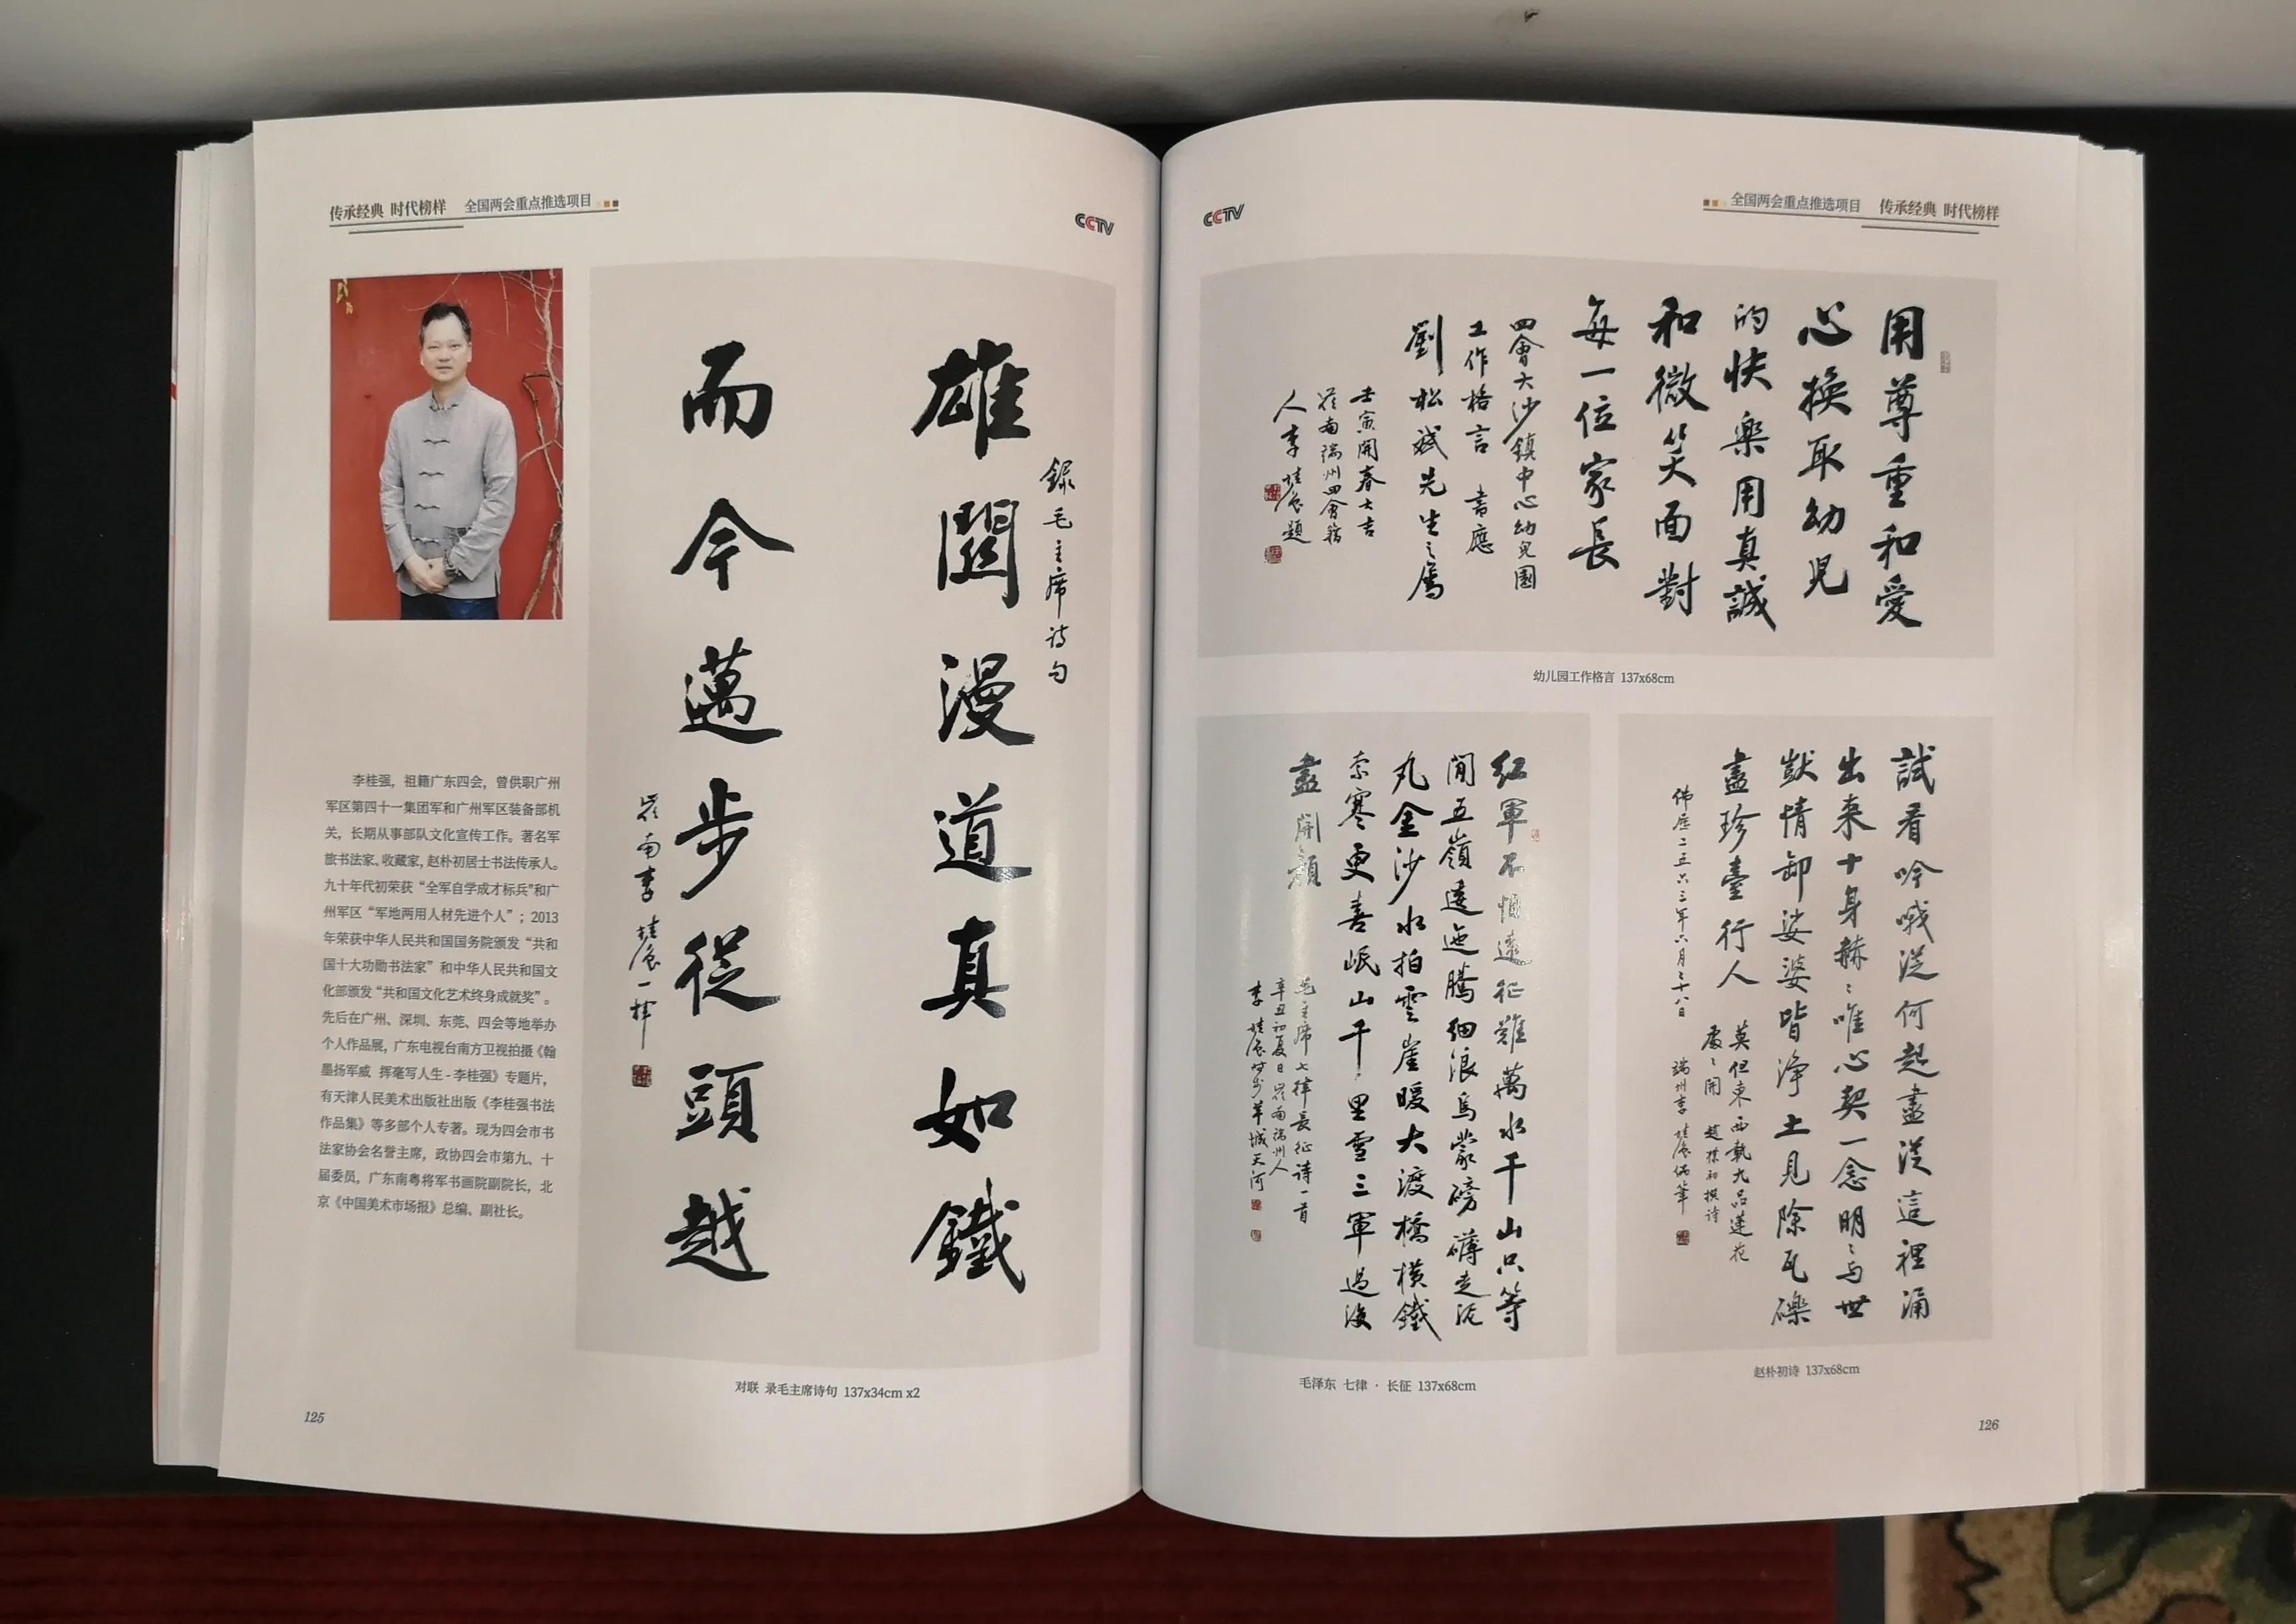 传承经典 时代榜样 全国两会重点推选项目
CCTV
李桂强，祖籍广东四会，曾供职广州
军区第四十一集团军和广州军区装备部机
关，长期从事部队文化宣传工作。著名军
旅书法家、收藏家，赵朴初居士书法传承人。
九十年代初荣获“全军自学成才标兵”和广
州军区“军地两用人材先进个人”；2013
年荣获中华人民共和国国务院颁发“共和
国十大功勋书法家”和中华人民共和国文
化部颁发“共和国文化艺术终身成就奖”。
先后在广州、深圳、东莞、四会等地举办
个人作品展，广东电视台南方卫视拍摄《翰
墨扬军威 挥毫写人生-李桂强》专题片，
有天津人民美术出版社出版《李桂强书法
作品集》等多部个人专著。现为四会市书
法家协会名誉主席，政协四会市第九、十
届委员，广东南粤将军书画院副院长，北
京《中国美术市场报》总编、副社长。
錄毛主席诗句
雄關漫道真如鐵
而今邁步從頭越
嶺南李桂强一揮
对联 录毛主席诗句 137x34cm x2
125
CCTV
全国两会重点推选项目 传承经典 时代榜样
用尊重和爱
心换取幼児
的快樂用真誠
和微笑面對
每一位家長
四會大沙鎮中心幼兒園
工作格言 書應
劉松斌先生之属
壬寅開春大吉
嶺南端州四會籍
人李桂强題
幼儿园工作格言 137x68cm
红軍不怕遠征難萬水千山只等
閒五嶺逶迤騰细浪烏蒙磅礴走泥
丸金沙水拍雲崖暖大渡橋橫鐵
索寒更喜岷山千里雪三軍過後
盡開顏
毛主席七律長征诗一首
辛丑初夏日嶺南端州人
李桂强于羊城天河
毛泽东 七律 · 长征 137x68cm
試看吟哦從何起盡從這裡涌
出来十身赫〻唯心契一念明〻与世
猷情卸娑婆皆淨土見除瓦礫
盡珍臺行人
莫但東西執九品蓮花
處〻開 趙樸初撰诗
佛歷二五六三年六月二十八日
端州李桂强沐筆
赵朴初诗 137x68cm
126